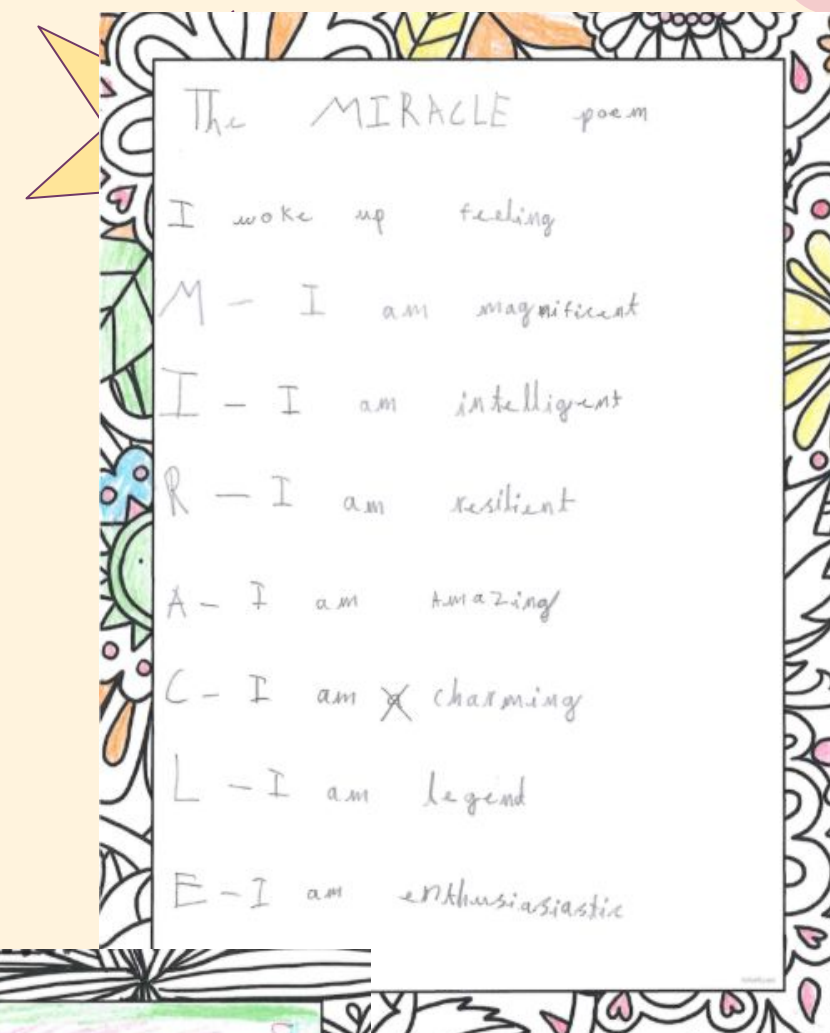 The MIRACLE poem
I woke up feeling
M - I am magnificent
I - I am intelligent
R - I am resilient
A - I am Amazing
C - I am a charming
L - I am legend
E - I am enthusiasiastic